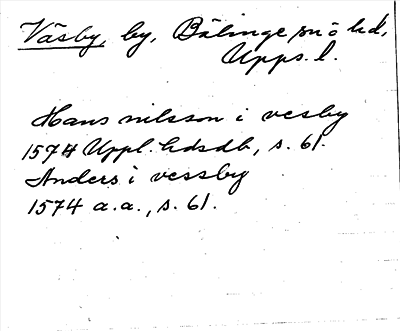 Väsby, by, Bälinge snö hd,
Upps. l.
Hans nilsson i vesby
1574 Uppl. hdsdb, s. 61.
Anders i vessby
1574 a.a., s. 61.